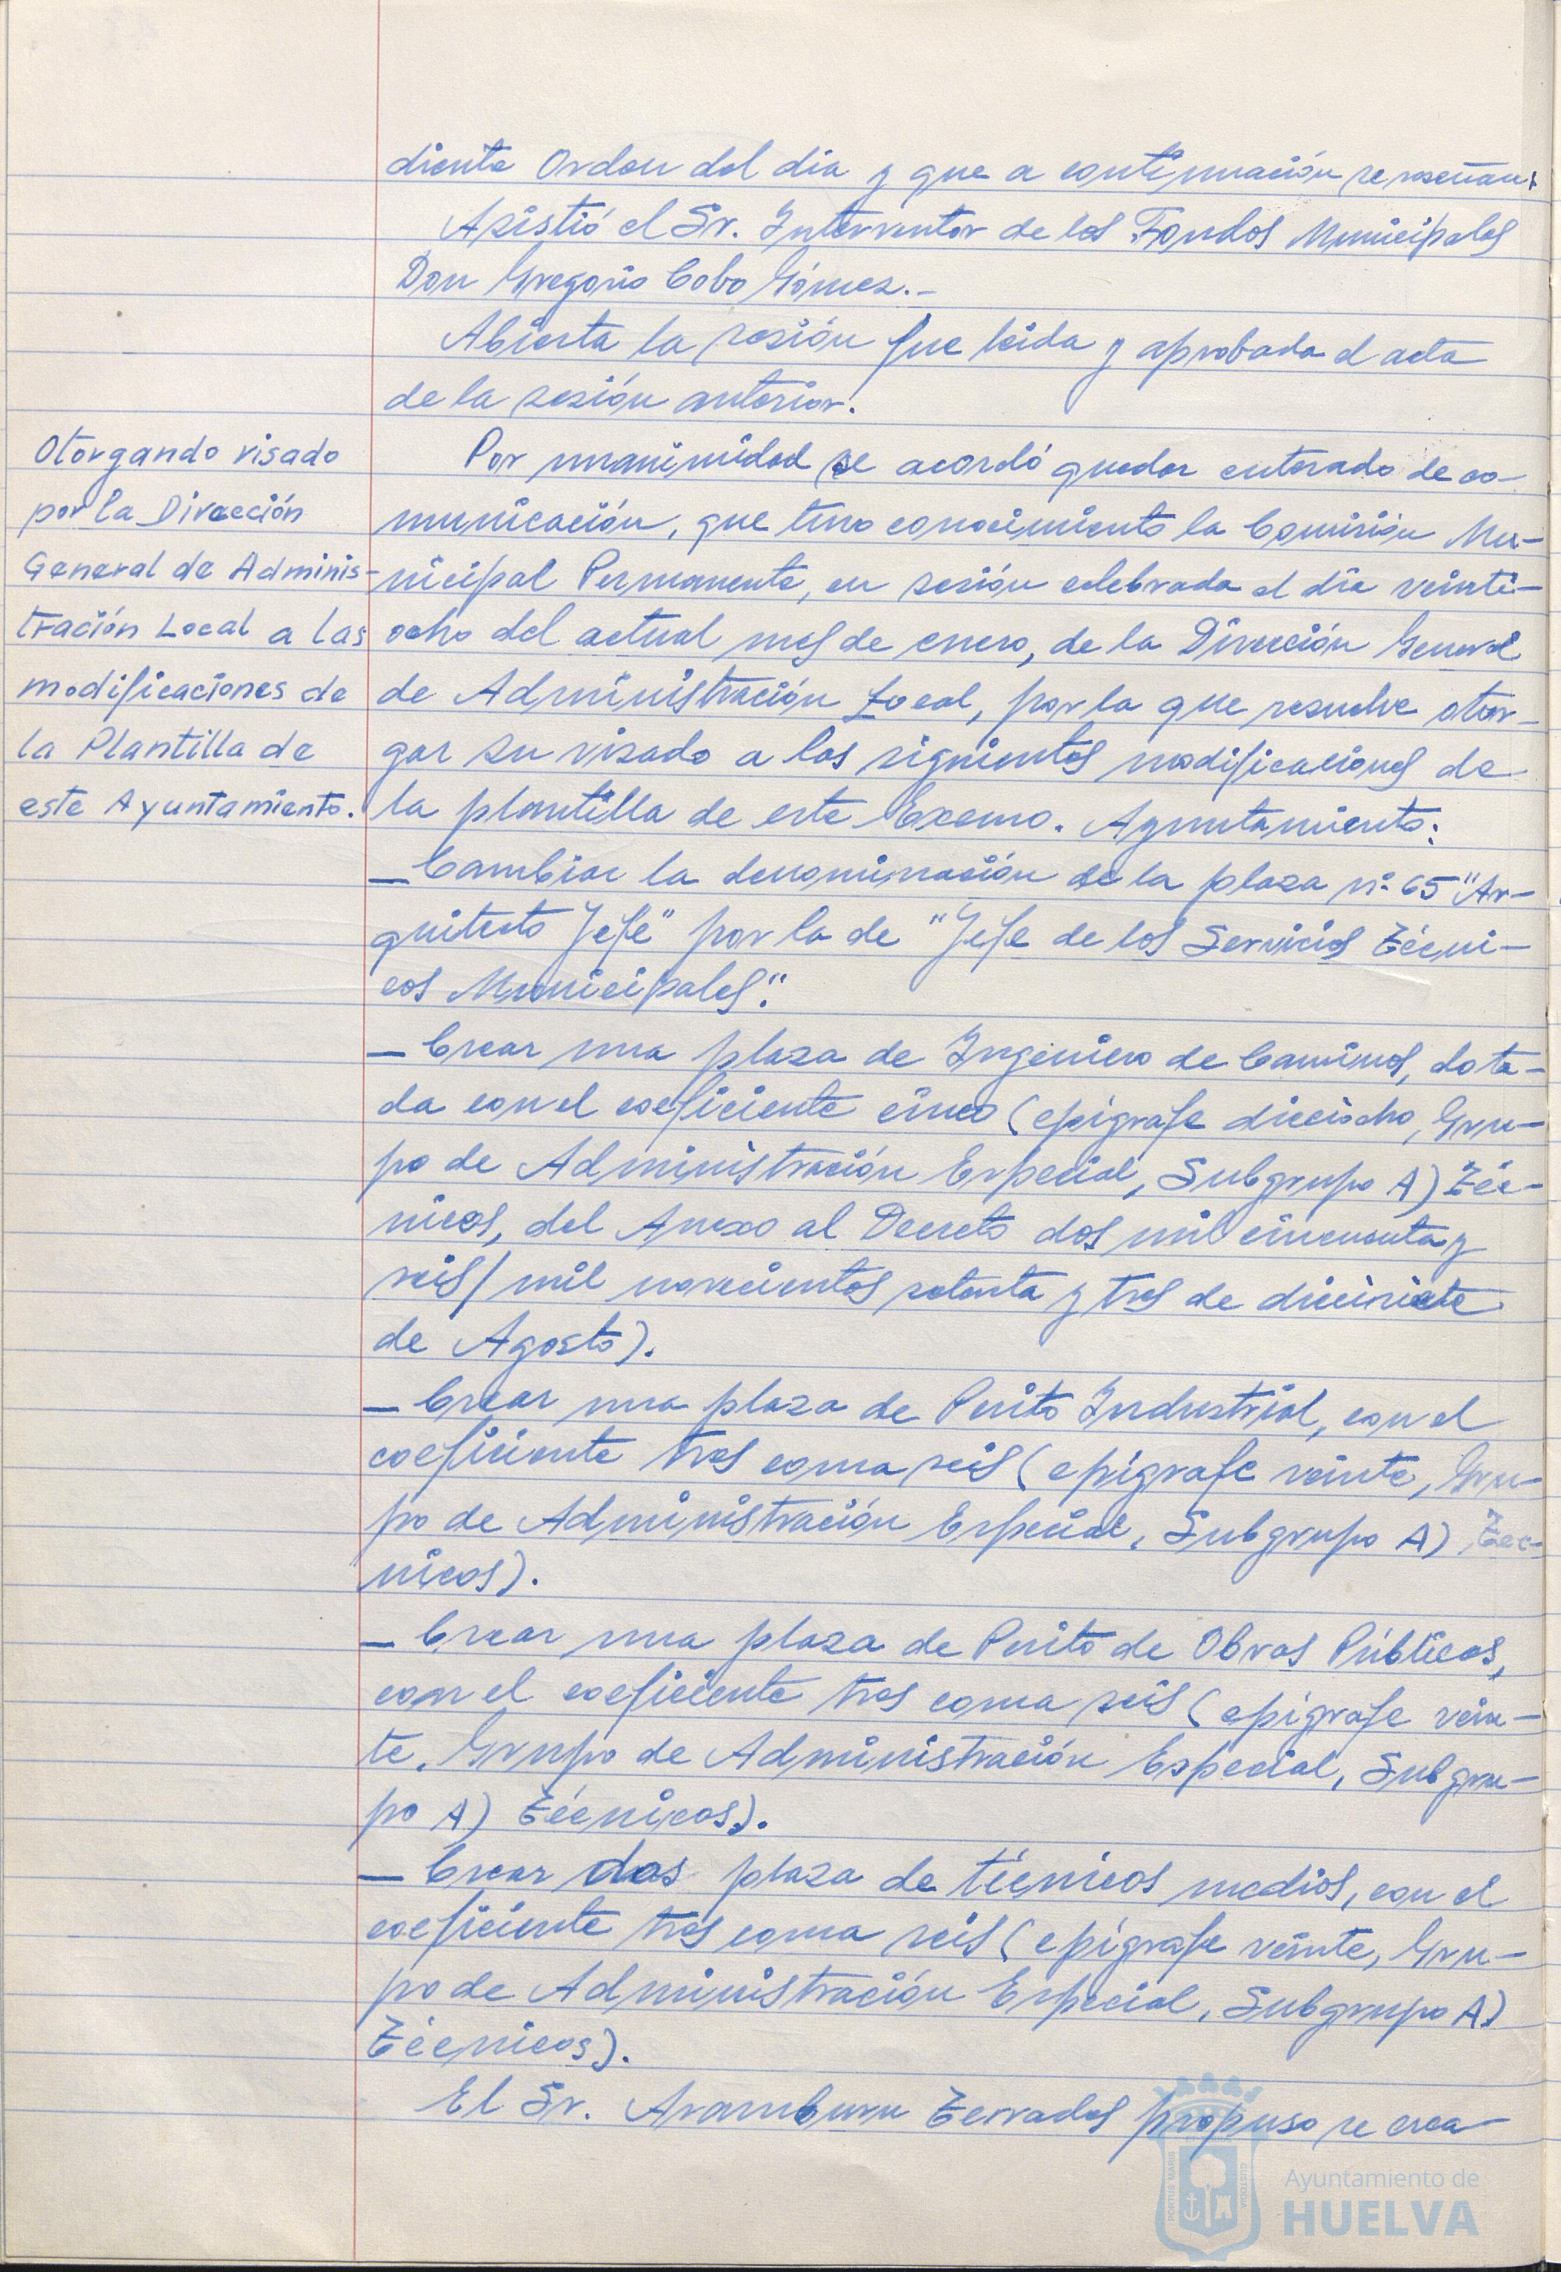 diente Orden del dia y que a continuación se reseñan:
Asistió el Sr. Interventor de los Fondos Municipales
Don Gregorio Cobo Gómez.-
Abierta la sesión fue leida y aprobada el acta
de la sesión anterior.
Otorgando visado
por la Dirección
General de Adminis-
tración Local a las
modificaciones de
la Plantilla de
este Ayuntamiento.
Por unanimidad se acordó quedar enterado de co-
municación, que tuvo conocimiento la Comisión Mu-
nicipal Permanente, en sesión celebrada el día veinti-
ocho del actual mes de enero, de la Dirección General
de Administración Local, por la que resuelve otor-
gar su visado a las siguientes modificaciones de
la plantilla de este Excmo. Ayuntamiento:
- Cambiar la denominación de la plaza nº 65 "Ar-
quitecto Jefe" por la de "Jefe de los Servicios Técni-
cos Municipales".
- Crear una plaza de Ingeniero de Caminos, dota-
da con el coeficiente cinco (epígrafe dieciocho, Gru-
po de Administración Especial, Subgrupo A) Téc-
nicos, del Anexo al Decreto dos mil cincuenta y
seis/mil novecientos setenta y tres de diecisiete
de Agosto).
- Crear una plaza de Perito Industrial, con el
coeficiente tres coma seis (epígrafe veinte, Gru-
po de Administración Especial, Subgrupo A) Téc-
nicos).
- Crear una plaza de Perito de Obras Públicas,
con el coeficiente tres coma seis (epígrafe vein-
te, Grupo de Administración Especial, Subgru-
po A) Técnicos).
- Crear dos plaza de técnicos medios, con el
coeficiente tres coma seis (epígrafe veinte, Gru-
po de Administración Especial, Subgrupo A)
Técnicos).
El Sr. Aramburu Terrados propuso se crea-
PORTUS MARIS
CUSTODIA
Ayuntamiento de
HUELVA